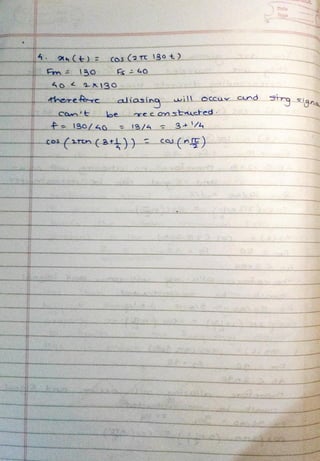 4. x4(t) = cos(2π 130t)
Fm = 130 Fs = 40
40 < 2×130
therefore aliasing will occur and sing signa
can't be reconstructed.
f = 130/40 = 13/4 = 3+1/4
cos(2πn(3+1/4)) = cos(nπ/2)